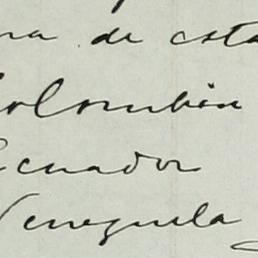 na de esta
Colombia
Ecuador
Venezuela